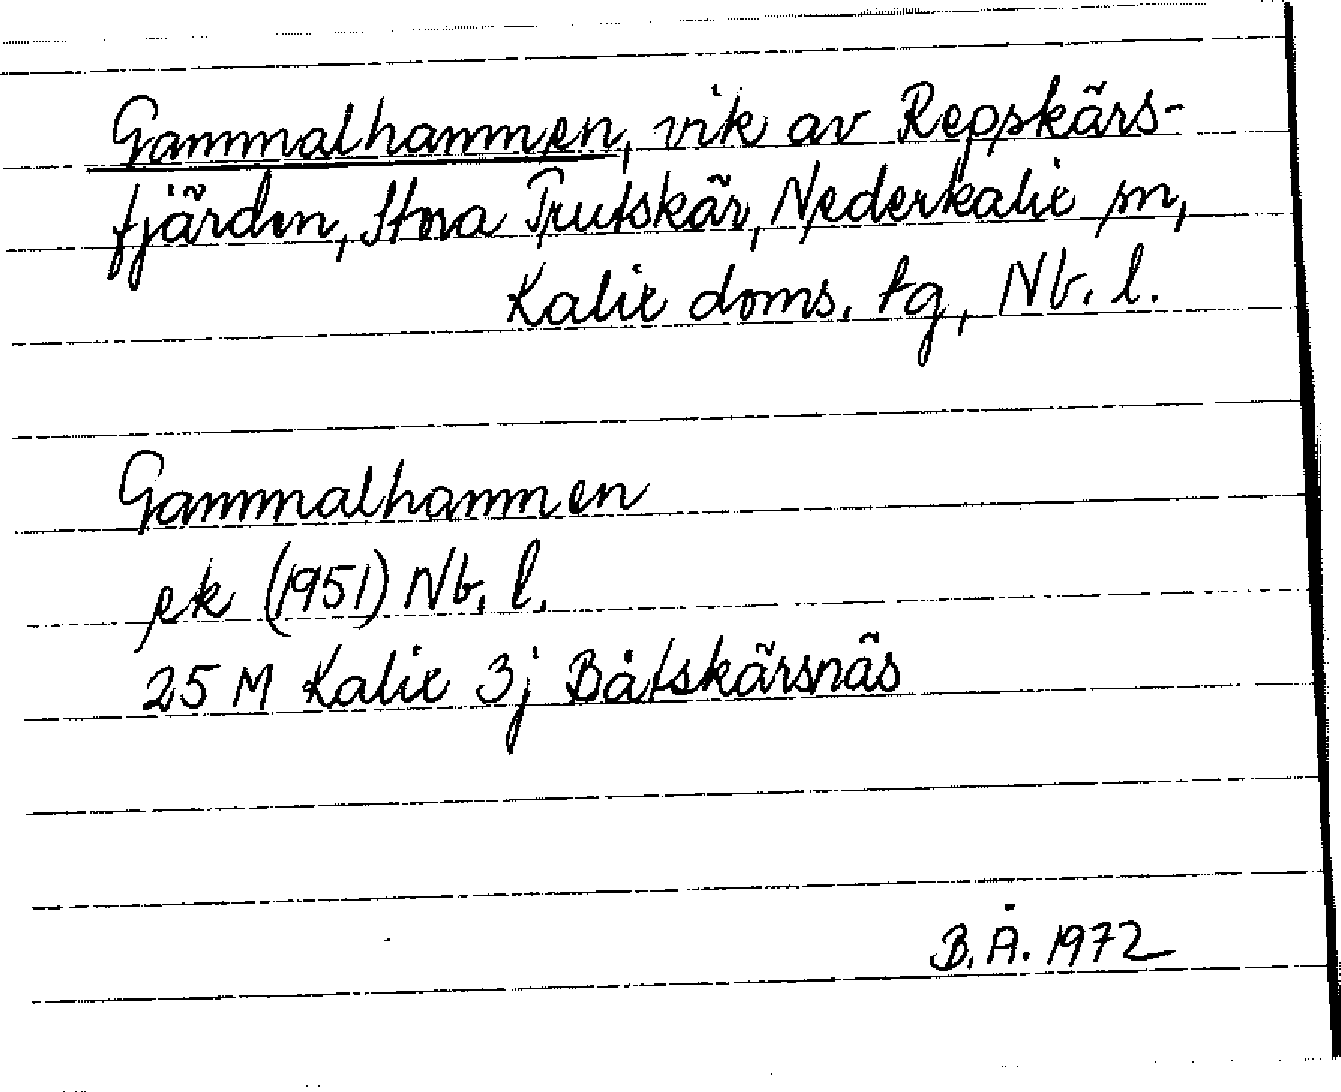 Gammalhammen, vik av Repskärs-
fjärden, Stora Trutskär, Nederkalix sn,
Kalix doms. tg, Nb. l.
Gammalhammen
ek (1951) Nb. l.
25 M Kalix 3j Båtskärsnäs
B. Å. 1972